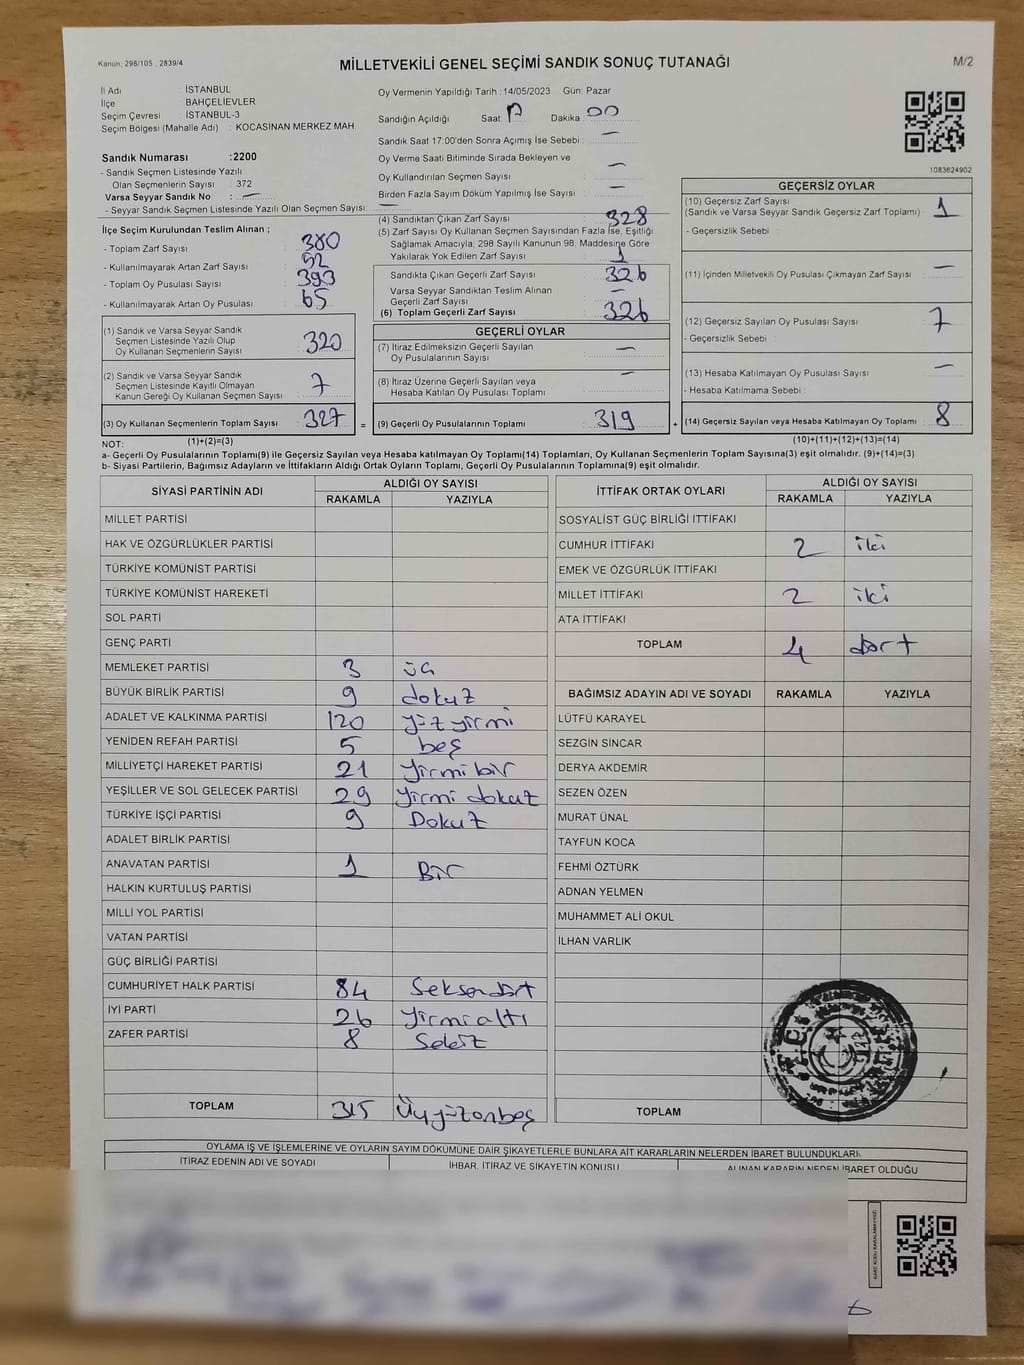 Kanun; 298/105 , 2839/4
MİLLETVEKİLİ GENEL SEÇİMİ SANDIK SONUÇ TUTANAĞI
M/2
İl Adı İSTANBUL
İlçe BAHÇELİEVLER
Seçim Çevresi İSTANBUL-3
Seçim Bölgesi (Mahalle Adı) : KOCASİNAN MERKEZ MAH.
Sandık Numarası :2200
- Sandık Seçmen Listesinde Yazılı
Olan Seçmenlerin Sayısı : 372
Varsa Seyyar Sandık No : —
- Seyyar Sandık Seçmen Listesinde Yazılı Olan Seçmen Sayısı : —
Oy Vermenin Yapıldığı Tarih : 14/05/2023 Gün: Pazar
Sandığın Açıldığı Saat: Dakika : 00
Sandık Saat 17:00'den Sonra Açımış İse Sebebi : —
Oy Verme Saati Bitiminde Sırada Bekleyen ve
Oy Kullandırılan Seçmen Sayısı : —
Birden Fazla Sayım Döküm Yapılmış İse Sayısı : —
1083624902
İlçe Seçim Kurulundan Teslim Alınan ;
- Toplam Zarf Sayısı : 380
- Kullanılmayarak Artan Zarf Sayısı : 52
- Toplam Oy Pusulası Sayısı : 393
- Kullanılmayarak Artan Oy Pusulası : 65
(1) Sandık ve Varsa Seyyar Sandık
Seçmen Listesinde Yazılı Olup
Oy Kullanan Seçmenlerin Sayısı : 320
(2) Sandık ve Varsa Seyyar Sandık
Seçmen Listesinde Kayıtlı Olmayan
Kanun Gereği Oy Kullanan Seçmen Sayısı : 7
(3) Oy Kullanan Seçmenlerin Toplam Sayısı : 327
(1)+(2)=(3)
(4) Sandıktan Çıkan Zarf Sayısı : 328
(5) Zarf Sayısı Oy Kullanan Seçmen Sayısından Fazla İse, Eşitliği
Sağlamak Amacıyla; 298 Sayılı Kanunun 98. Maddesine Göre
Yakılarak Yok Edilen Zarf Sayısı : 1
Sandıkta Çıkan Geçerli Zarf Sayısı : 326
Varsa Seyyar Sandıktan Teslim Alınan
Geçerli Zarf Sayısı : —
(6) Toplam Geçerli Zarf Sayısı : 326
GEÇERLİ OYLAR
(7) İtiraz Edilmeksizin Geçerli Sayılan
Oy Pusulalarının Sayısı : —
(8) İtiraz Üzerine Geçerli Sayılan veya
Hesaba Katılan Oy Pusulası Toplamı : —
= (9) Geçerli Oy Pusulalarının Toplamı : 319 +
GEÇERSİZ OYLAR
(10) Geçersiz Zarf Sayısı : 1
(Sandık ve Varsa Seyyar Sandık Geçersiz Zarf Toplamı)
- Geçersizlik Sebebi :
(11) İçinden Milletvekili Oy Pusulası Çıkmayan Zarf Sayısı : —
(12) Geçersiz Sayılan Oy Pusulası Sayısı : 7
- Geçersizlik Sebebi :
(13) Hesaba Katılmayan Oy Pusulası Sayısı : —
- Hesaba Katılmama Sebebi :
(14) Geçersiz Sayılan veya Hesaba Katılmayan Oy Toplamı : 8
(10)+(11)+(12)+(13)=(14)
NOT:
a- Geçerli Oy Pusulalarının Toplamı(9) ile Geçersiz Sayılan veya Hesaba katılmayan Oy Toplamı(14) Toplamları, Oy Kullanan Seçmenlerin Toplam Sayısına(3) eşit olmalıdır. (9)+(14)=(3)
b- Siyasi Partilerin, Bağımsız Adayların ve İttifakların Aldığı Ortak Oyların Toplamı, Geçerli Oy Pusulalarının Toplamına(9) eşit olmalıdır.
SİYASİ PARTİNİN ADI ALDIĞI OY SAYISI
RAKAMLA YAZIYLA
MİLLET PARTİSİ
HAK VE ÖZGÜRLÜKLER PARTİSİ
TÜRKİYE KOMÜNİST PARTİSİ
TÜRKİYE KOMÜNİST HAREKETİ
SOL PARTİ
GENÇ PARTİ
MEMLEKET PARTİSİ 3 üç
BÜYÜK BİRLİK PARTİSİ 9 dokuz
ADALET VE KALKINMA PARTİSİ 120 yüz yirmi
YENİDEN REFAH PARTİSİ 5 beş
MİLLİYETÇİ HAREKET PARTİSİ 21 yirmi bir
YEŞİLLER VE SOL GELECEK PARTİSİ 29 yirmi dokuz
TÜRKİYE İŞÇİ PARTİSİ 9 Dokuz
ADALET BİRLİK PARTİSİ
ANAVATAN PARTİSİ 1 Bir
HALKIN KURTULUŞ PARTİSİ
MİLLİ YOL PARTİSİ
VATAN PARTİSİ
GÜÇ BİRLİĞİ PARTİSİ
CUMHURİYET HALK PARTİSİ 84 Seksendört
İYİ PARTİ 26 yirmialtı
ZAFER PARTİSİ 8 Sekiz
TOPLAM 315 Üçyüzonbeş
İTTİFAK ORTAK OYLARI ALDIĞI OY SAYISI
RAKAMLA YAZIYLA
SOSYALİST GÜÇ BİRLİĞİ İTTİFAKI
CUMHUR İTTİFAKI 2 iki
EMEK VE ÖZGÜRLÜK İTTİFAKI
MİLLET İTTİFAKI 2 iki
ATA İTTİFAKI
TOPLAM 4 dört
BAĞIMSIZ ADAYIN ADI VE SOYADI RAKAMLA YAZIYLA
LÜTFÜ KARAYEL
SEZGİN SİNCAR
DERYA AKDEMİR
SEZEN ÖZEN
MURAT ÜNAL
TAYFUN KOCA
FEHMİ ÖZTÜRK
ADNAN YELMEN
MUHAMMET ALİ OKUL
İLHAN VARLIK
TOPLAM
OYLAMA İŞ VE İŞLEMLERİNE VE OYLARIN SAYIM DÖKÜMÜNE DAİR ŞİKAYETLERLE BUNLARA AİT KARARLARIN NELERDEN İBARET BULUNDUKLARI
İTİRAZ EDENİN ADI VE SOYADI İHBAR, İTİRAZ VE ŞİKAYETİN KONUSU ALINAN KARARIN NEDEN İBARET OLDUĞU